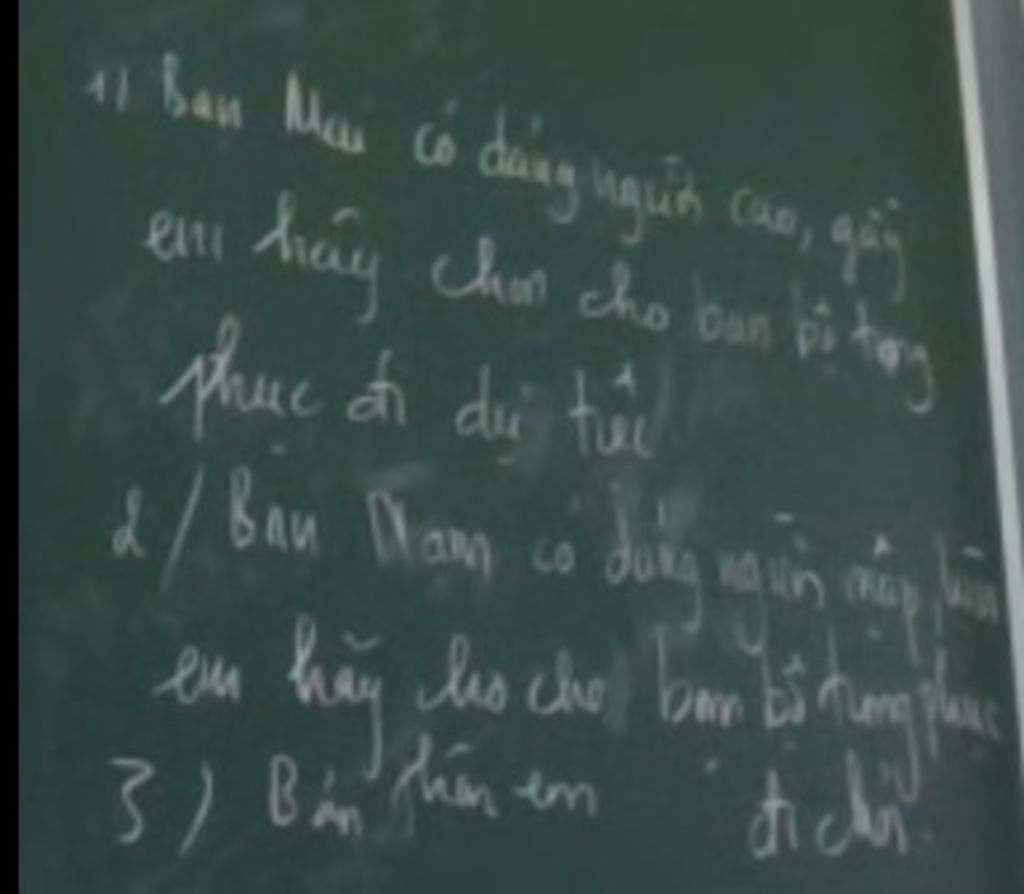 1) Bạn Mai có dáng người cao, gầy
em hãy chọn cho bạn bộ trang
phục đi dự tiệc
2/ Bạn Nam có dáng người mập, lùn
em hãy cho bạn bộ trang phục
3) Bản thân em đi chơi.